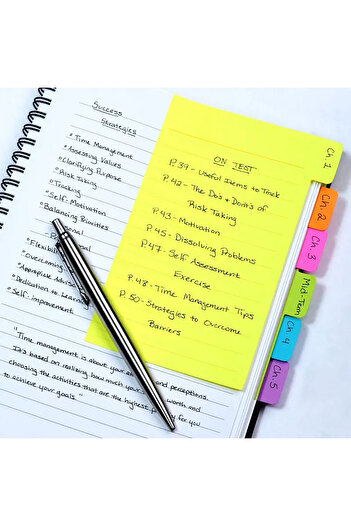 Success
Strategies
Time Management
Assessing Values
Clarifying Purpose
Risk Taking
Tracking
Self-Motivation
Balancing Priorities
Flexibility
Overcoming
Appropriate
Dedication to Learn
Self improvement
"Time management is about your and perceptions.
It's based on realizing how much your worth and
choosing the activities that are the highest for you
to achieve your goals."
ON TEST
P.39 - Useful Items to Track
P.42 - The Do's & Don'ts of
Risk Taking
P.43 - Motivation
P.45 - Dissolving Problems
P.47 - Self Assessment
Exercise
P.48 - Time Management Tips
P.50 - Strategies to Overcome
Barriers
Ch. 1
Ch. 2
Ch. 3
Mid-Term
Ch. 4
Ch. 5